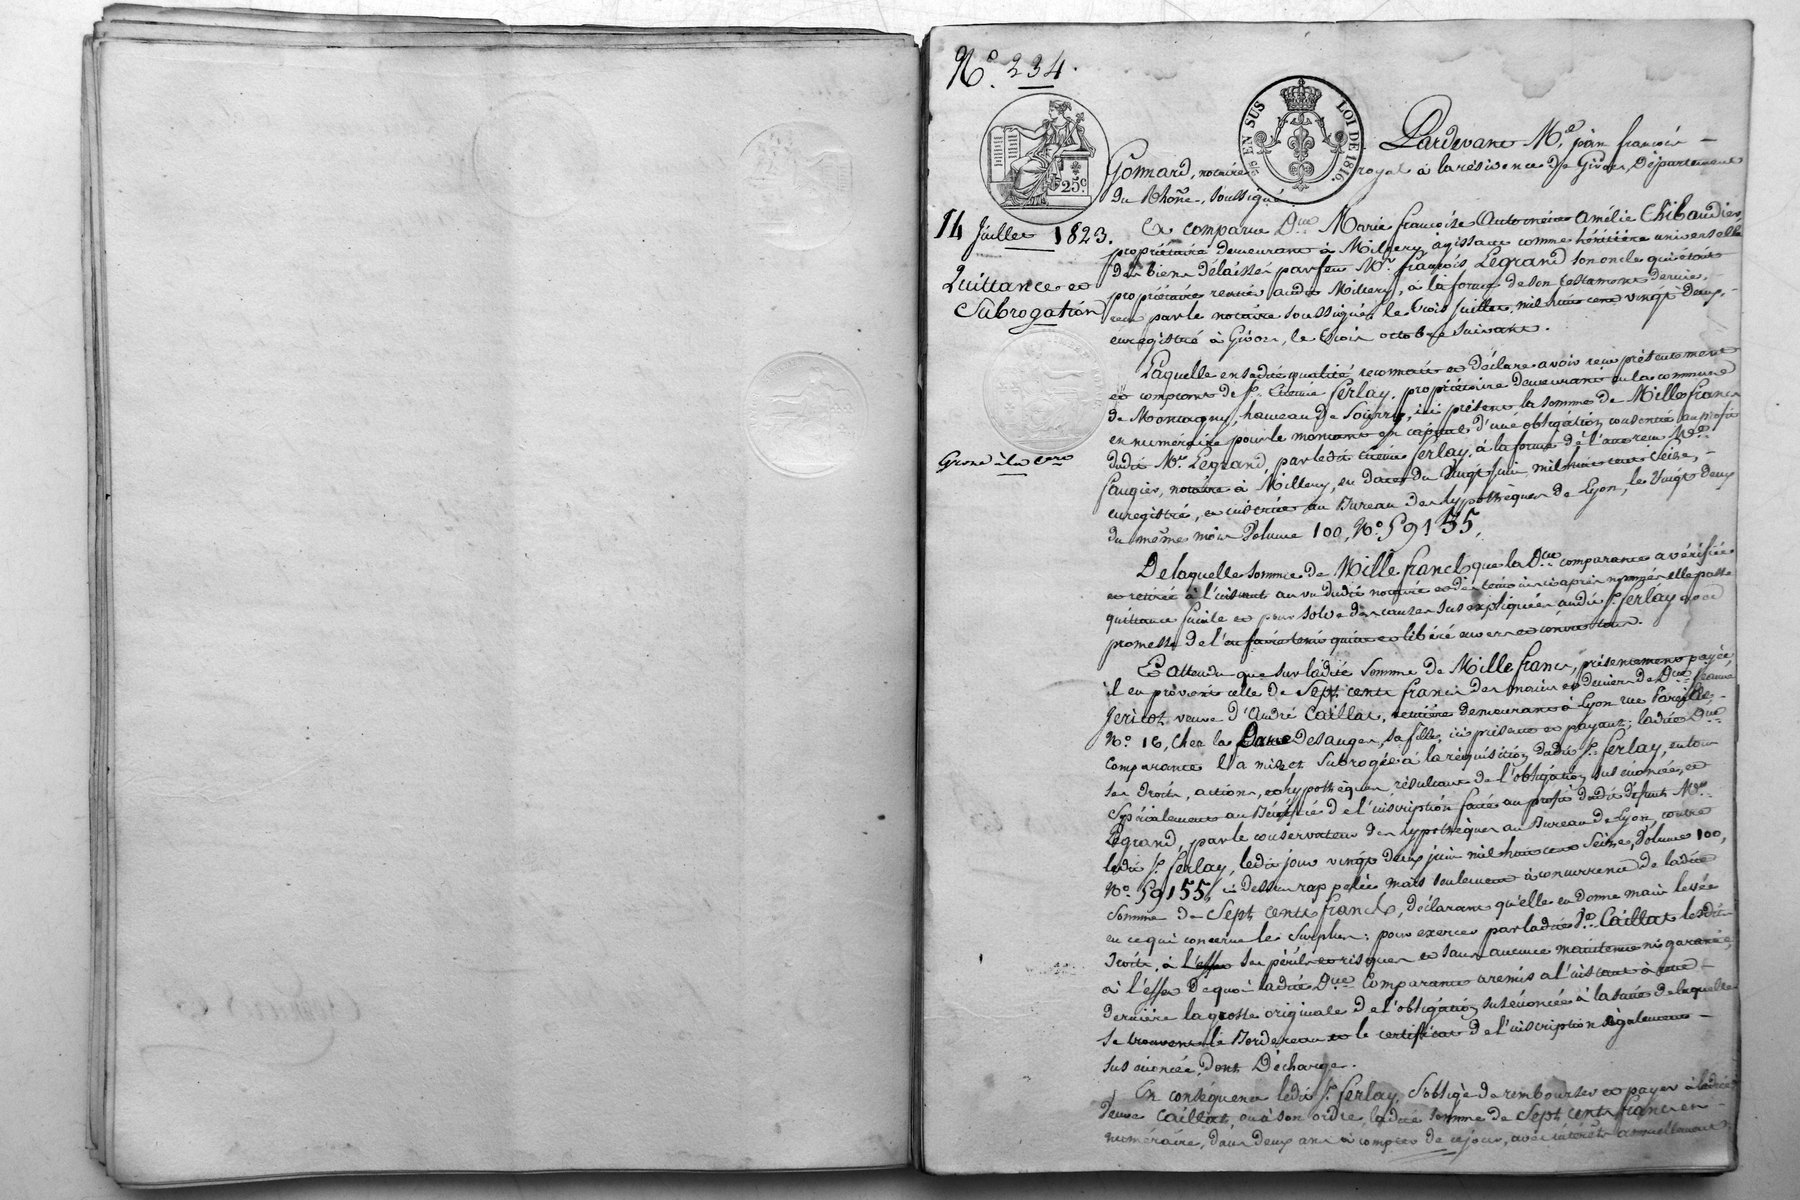 N.º 234.
25 c
5 EN SUS
LOI DE 1816.
Pardevant M.e jean françois
Gonnard, notaire royal à la résidence de Givors, Département
du Rhône, soussigné
14 Juillet 1823.
Quittance et
Subrogation
Grosse à la
Est comparue D.lle Marie françoise Antoinette Amélie Thibaudier,
propriétaire demeurant à Millery, agissant comme héritière universelle
des biens délaissés par feu M.r françois Legrand son oncle qui était
propriétaire rentier audit Millery, à la forme de son testament dernier,
reçu par le notaire soussigné, le trois juillet mil huit cent vingt deux,
enregistré à Givors, le trois octobre suivant.
Laquelle en sadite qualité reconnait et déclare avoir reçu présentement
et comptant de S.r Etienne ferlay, propriétaire demeurant en la commune
de Montagny, hameau de Sourzy, ici présent la somme de Mille francs
en numéraire pour le montant en capital d'une obligation consentie au profit
dudit M.r Legrand, par ledit Etienne ferlay, à la forme de l'acte reçu M.e
faugier, notaire à Millery, en date du vingt juin mil huit cent seize,
enregistré, et inscrite au Bureau des hypothèques de Lyon, le vingt deux
du même mois Volume 100, N.º 59155.
De laquelle somme de Mille francs que la D.lle comparante a vérifiée
et retirée à l'instant au vu dudit notaire et des témoins ci après nommés elle passe
quittance finale et pour solde des causes sus expliquées audit S.r ferlay avec
promesse de l'en faire tenir quitte et libéré envers et contre tous.
Et attendu que sur ladite somme de Mille francs, présentement payée,
il en provient celle de Sept cents francs des mains et deniers de D.me jeanne
Jericot, veuve d'André Caillat, rentière demeurant à Lyon rue
N.º 16, chez la Dame Desanges, sa fille, ici présente et payant; ladite D.lle
comparante l'a mise et subrogée à la réquisition dudit S.r ferlay, en tous
ses droits, actions, et hypothèques résultant de l'obligation sus énoncée, et
spécialement au Bénéfice de l'inscription faite au profit dudit défunt M.r
Legrand, par le conservateur des hypothèques au Bureau de Lyon, contre
ledit S.r ferlay, ledit jour vingt deux juin mil huit cent seize, Volume 100,
N.º 59155, ci dessus rappelée mais seulement à concurrence de ladite
somme de Sept cents francs, déclarant qu'elle en donne main levée
en ce qui concerne le surplus; pour exercer par ladite V.e Caillat lesdits
droits, à ses périls et risques et sans aucune maintenue ni garantie,
à l'effet de quoi ladite D.lle comparante a remis à l'instant à cette
dernière la grosse originale de l'obligation sus énoncée à la suite de laquelle
se trouvent le Bordereau et le certificat de l'inscription également
sus énoncée, dont Décharge.
En conséquence ledit S.r ferlay, s'oblige de rembourser et payer à ladite
Veuve Caillat, ou à son ordre, ladite somme de Sept cents francs en
numéraire, dans deux ans à compter de ce jour, avec intérêts annuellement